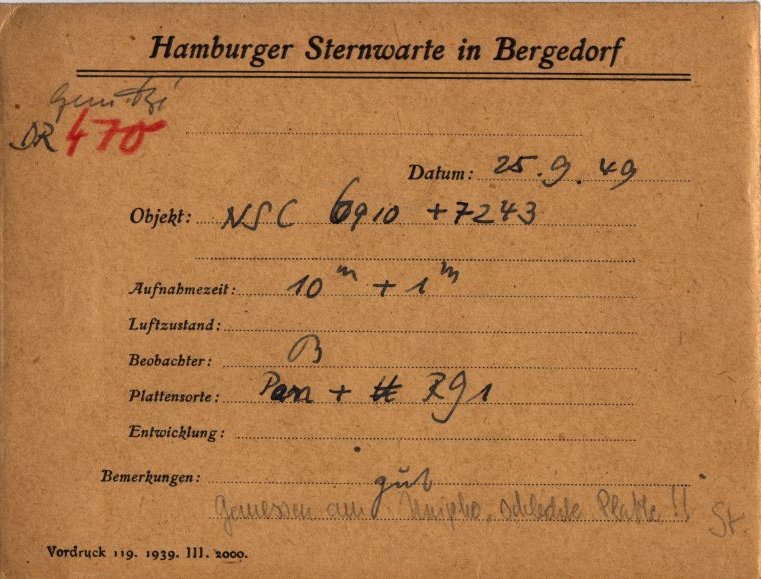 Hamburger Sternwarte in Bergedorf
DR 470
Datum: 25.9.49
Objekt: NGC 6910 + 7243
Aufnahmezeit: 10m + 1m
Luftzustand:
Beobachter: B
Plattensorte: Pan + RG1
Entwicklung:
Bemerkungen: gut
Gemessen am schlechte Platte!! St
Vordruck 119. 1939. III. 2000.